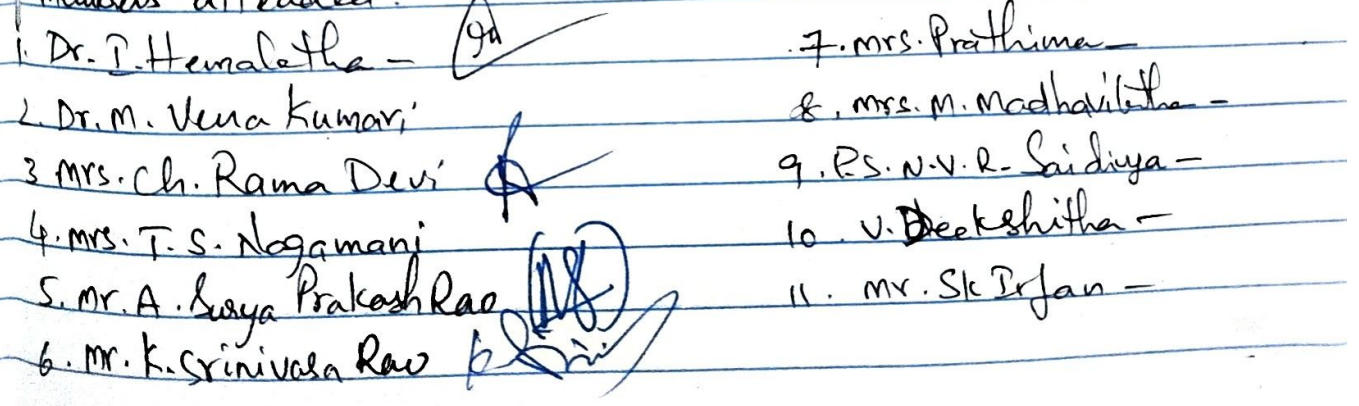 members attended:
1. Dr. I. Hemalatha -
2. Dr. M. Veena Kumari
3 Mrs. Ch. Rama Devi
4. Mrs. T. S. Nagamani
5. Mr. A. Surya Prakash Rao
6. Mr. K. Srinivasa Rao
7. Mrs. Prathima -
8. Mrs. M. Madhavilatha -
9. P.S. N.V.R. Saidivya -
10. V. Deekshitha -
11. Mr. Sk Irfan -